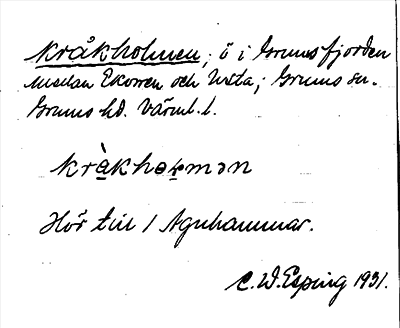 Kråkholmen; ö i Grumsfjorden
mellan Ekorren och Veta; Grums sn.
Grums hd. Värml. l.
kràkhoɭmən
Hör till 1 Agnhammar.
C. W. Esping 1931.